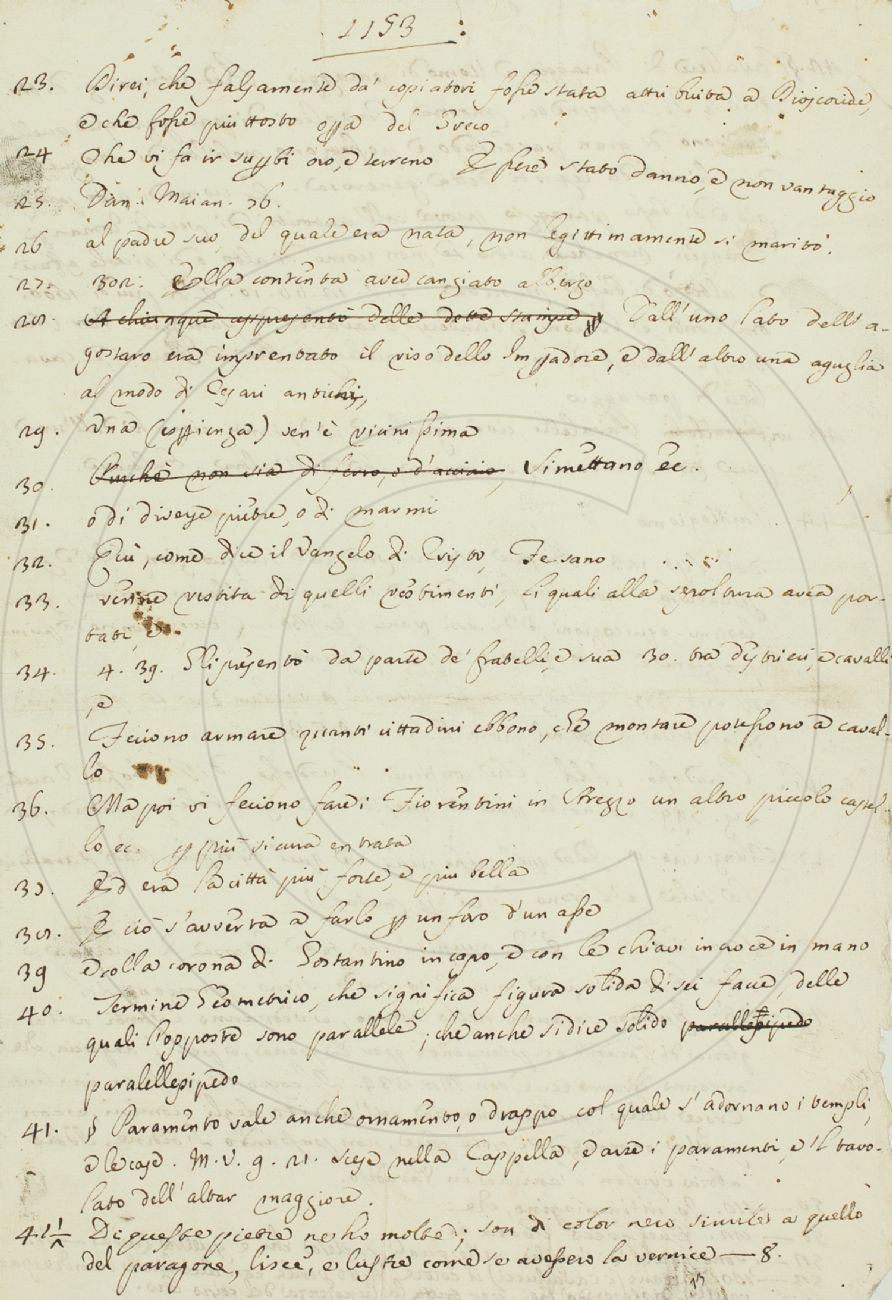 1153
23. Direi, che falsamente da' copiatori fosse stata attribuita a Dioscoride,
e che fosse piuttosto opa del Greco
24 Che vi fa ir su pti oro, e terreno E fece stato danno, e non vantaggio
25. Dan. Maian. 76.
26 al padre suo, del quale era nata, non legittimamente si maritò.
27. 302. Ella contenta avea cangiato albergo
28. A chiunque appresentò delle dette stampe Dall'uno lato dell'a-
gostaro era improntato il viso dello Impadore, e dall'altro una aguglia
al modo di Cesari antichi,
29. Una (esperienza) ven'è vicinissima
30. Purchè non sia di ferro, o d'acciaio, si mettano ec.
31. o di diverse pietre, o di marmi
32. Più, come dice il Vangelo di Cristo, Fe sano
33. venne vestita di quelli vestimenti, li quali alla sepoltura avea por-
tati, e
34. 4. 39. Gli presentò da parte de' fratelli, e sua 30. tra destrieri, e cavalli
, e
35. Feciono armare quanti cittadini ebbono, che montare potessono a caval-
lo
36. Ma poi vi feciono fare i Fiorentini in Arezzo un altro piccolo castel-
lo ec. p più sicura entrata
37. Ed era la città più forte, e più bella
38. E ciò s'avverta a farlo p un foro d'un asse
39 e colla corona di Gostantino in capo, e con le chiavi in croce in mano
40. Termine Geometrico, che significa figura solida di sei facce, delle
quali l'opposte sono parallele; che anche si dice solido parallelepipedo
paralellepipedo
41. § Paramento vale anche ornamento, o drappo col quale s'adornano i templi,
e le case. M. V. 9. 21. scese nella Cappella, e arse i paramenti, e 'l tavo-
lato dell'altar maggiore.
41½ Di queste pietre ne ho molte; son di color nero simile a quello
del paragone, liscè, e lustre come se avessero la vernice — 8.